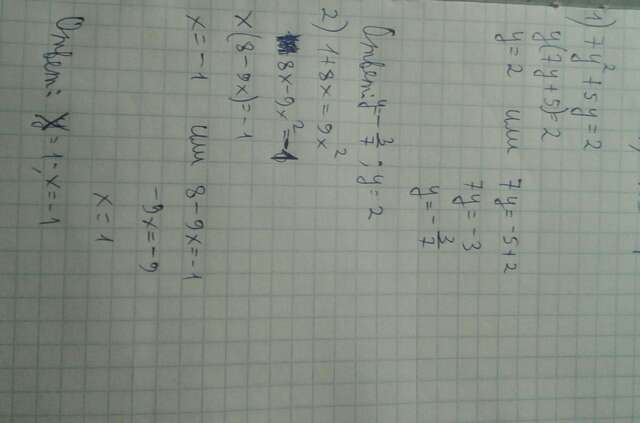 1) 7y²+5y=2
y(7y+5)=2
y=2 или 7y=-5+2
7y=-3
y=-3/7
Ответ: y=-3/7; y=2
2) 1+8x=9x²
8x-9x²=-1
x(8-9x)=-1
x=-1 или 8-9x=-1
-9x=-9
x=1
Ответ: x=1; x=-1